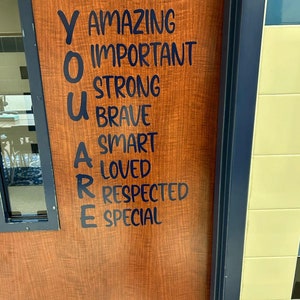 YOU ARE
AMAZING
IMPORTANT
STRONG
BRAVE
SMART
LOVED
RESPECTED
SPECIAL